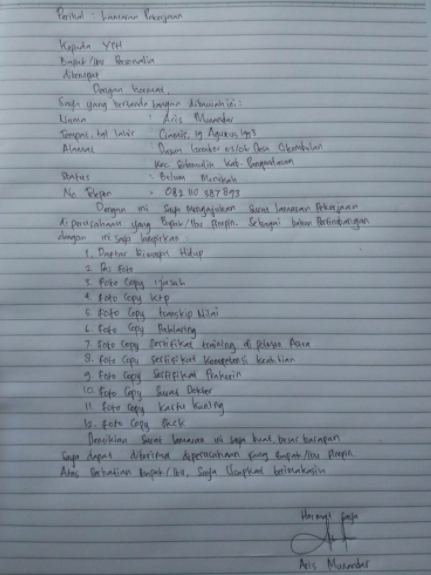 Perihal : Lamaran Pekerjaan
Kepada YTH
Bapak/Ibu Personalia
ditempat
Dengan hormat,
Saya yang bertanda tangan dibawah ini :
Nama : Aris Munandar
Tempat, tgl lahir : Ciamis, 19 Agustus 1993
Alamat : Dusun 03/06 Desa Cikembulan
Kec. Sidamulih Kab. Pangandaran
Status : Belum Menikah
No Telepon : 083 110 387 893
Dengan ini Saya Mengajukan Surat lamaran Pekerjaan
diperusahaan yang Bapak/Ibu Pimpin. Sebagai bahan Pertimbangan
dengan ini saya lampirkan :
1. Daftar Riwayat Hidup
2. Pas Foto
3. Foto Copy Ijasah
4. Foto Copy Ktp
5. Foto Copy transkip Nilai
6. Foto Copy Paklaring
7. Foto Copy Sertifikat training di
8. Foto Copy Sertifikat Kompetensi keahlian
9. Foto Copy Sertifikat Prakerin
10. Foto Copy Surat Dokter
11. Foto Copy kartu kuning
12. Foto Copy SKCK
Demikian Surat lamaran ini saya buat, besar harapan
Saya dapat diterima diperusahaan yang Bapak/Ibu Pimpin
Atas Perhatian Bapak/Ibu, Saya Ucapkan terimakasih
Hormat Saya
Aris Munandar